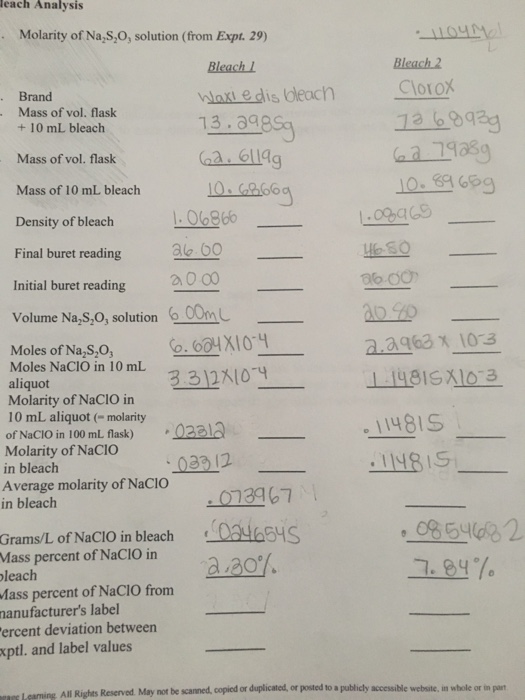 leach Analysis
Molarity of Na2S2O3 solution (from Expt. 29) .1104M
Bleach 1 Bleach 2
Brand Clorox
Mass of vol. flask + 10 mL bleach 73.2985g 73.6893g
Mass of vol. flask 62.6119g 62.7928g
Mass of 10 mL bleach 10.6866g 10.8965g
Density of bleach 1.06866 1.08965
Final buret reading 26.00 46.80
Initial buret reading 20.00 26.00
Volume Na2S2O3 solution 6.00mL 20.80
Moles of Na2S2O3 6.624X10-4 2.2963 X 10-3
Moles NaClO in 10 mL
aliquot 3.312X10-4 1.14815X10-3
Molarity of NaClO in
10 mL aliquot (= molarity
of NaClO in 100 mL flask) .03312 .114815
Molarity of NaClO
in bleach .03312 .114815
Average molarity of NaClO
in bleach .073967
Grams/L of NaClO in bleach .0246545 .0854682
Mass percent of NaClO in
bleach 2.30% 7.84%
Mass percent of NaClO from
manufacturer's label
Percent deviation between
xptl. and label values
Learning. All Rights Reserved. May not be scanned, copied or duplicated, or posted to a publicly accessible website, in whole or in part